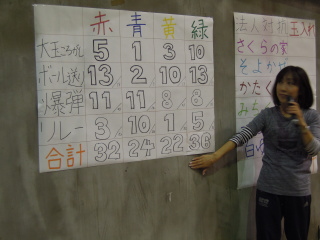 赤 青 黄 緑
大玉ころがし 5 1 3 10
ボール送り 13 2 10 13
爆弾 11 11 8 8
リレー 3 10 1 5
合計 32 24 22 36
法人対抗玉入れ
さくらの家
そよかぜ
かたく